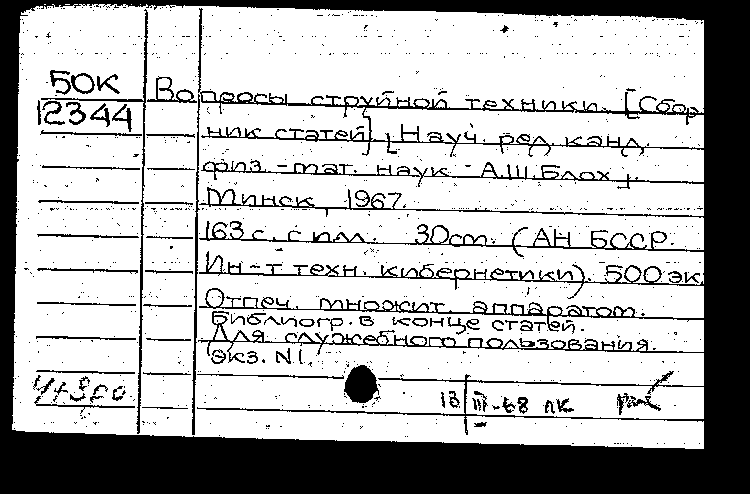 50К
12344
Вопросы струйной техники. [Сбор
ник статей] [Науч. ред. канд.
физ.-мат. наук А.Ш.Блох].
Минск, 1967.
163 с., с илл. 30см. (АН БССР.
Ин-т техн. кибернетики). 500 эк.
Отпеч. множит. аппаратом.
Библиогр. в конце статей.
Для служебного пользования.
Экз. N1.
III-68 ЛК